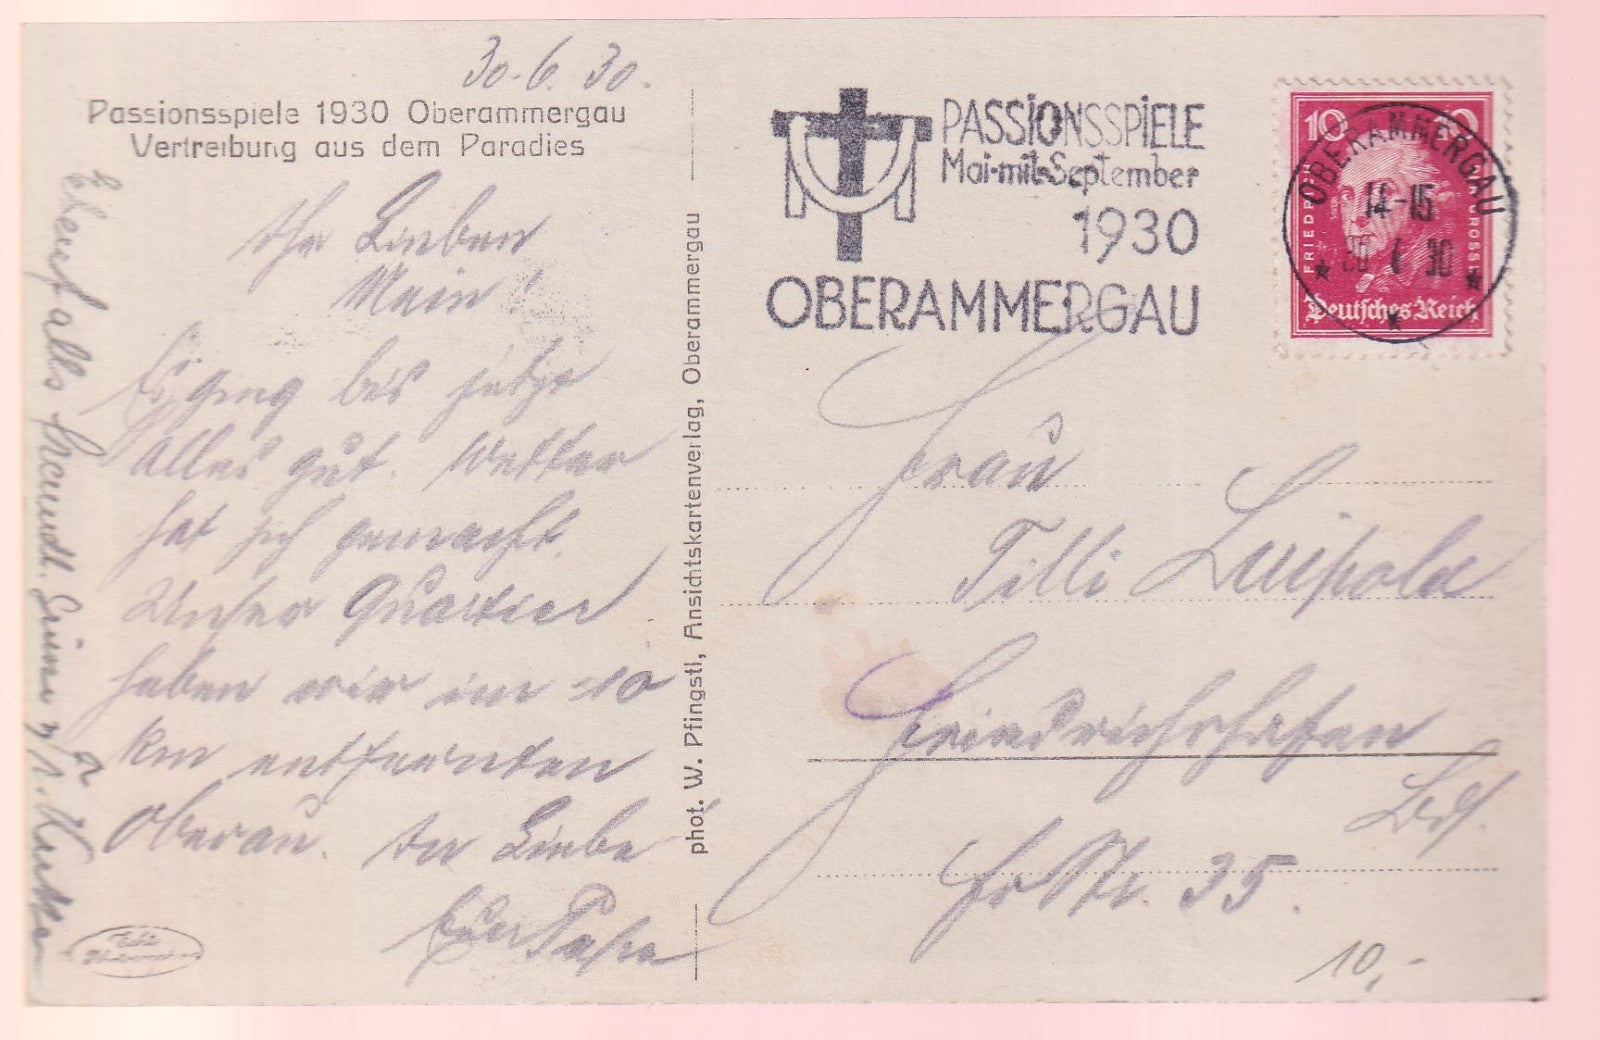 30.6.30.
Passionsspiele 1930 Oberammergau
Vertreibung aus dem Paradies
Ihr Lieben
Mein!
Es ging bis jetzt
alles gut. Wetter
hat sich gemacht.
Unser Quartier
haben wir im 10
km entfernten
Oberau. In Liebe
Euer Papa
Ebenfalls freundl. Grüße
phot. W. Pfingstl, Ansichtskartenverlag, Oberammergau
PASSIONSSPIELE
Mai-mit-September
1930
OBERAMMERGAU
10 10
FRIEDRICH D. GROSSE
Deutsches Reich
OBERAMMERGAU
14-15
30 6 30
Frau
Tilli Luipold
Friedrichshafen
Bd.
Fr Str. 35.
10,-
Echte